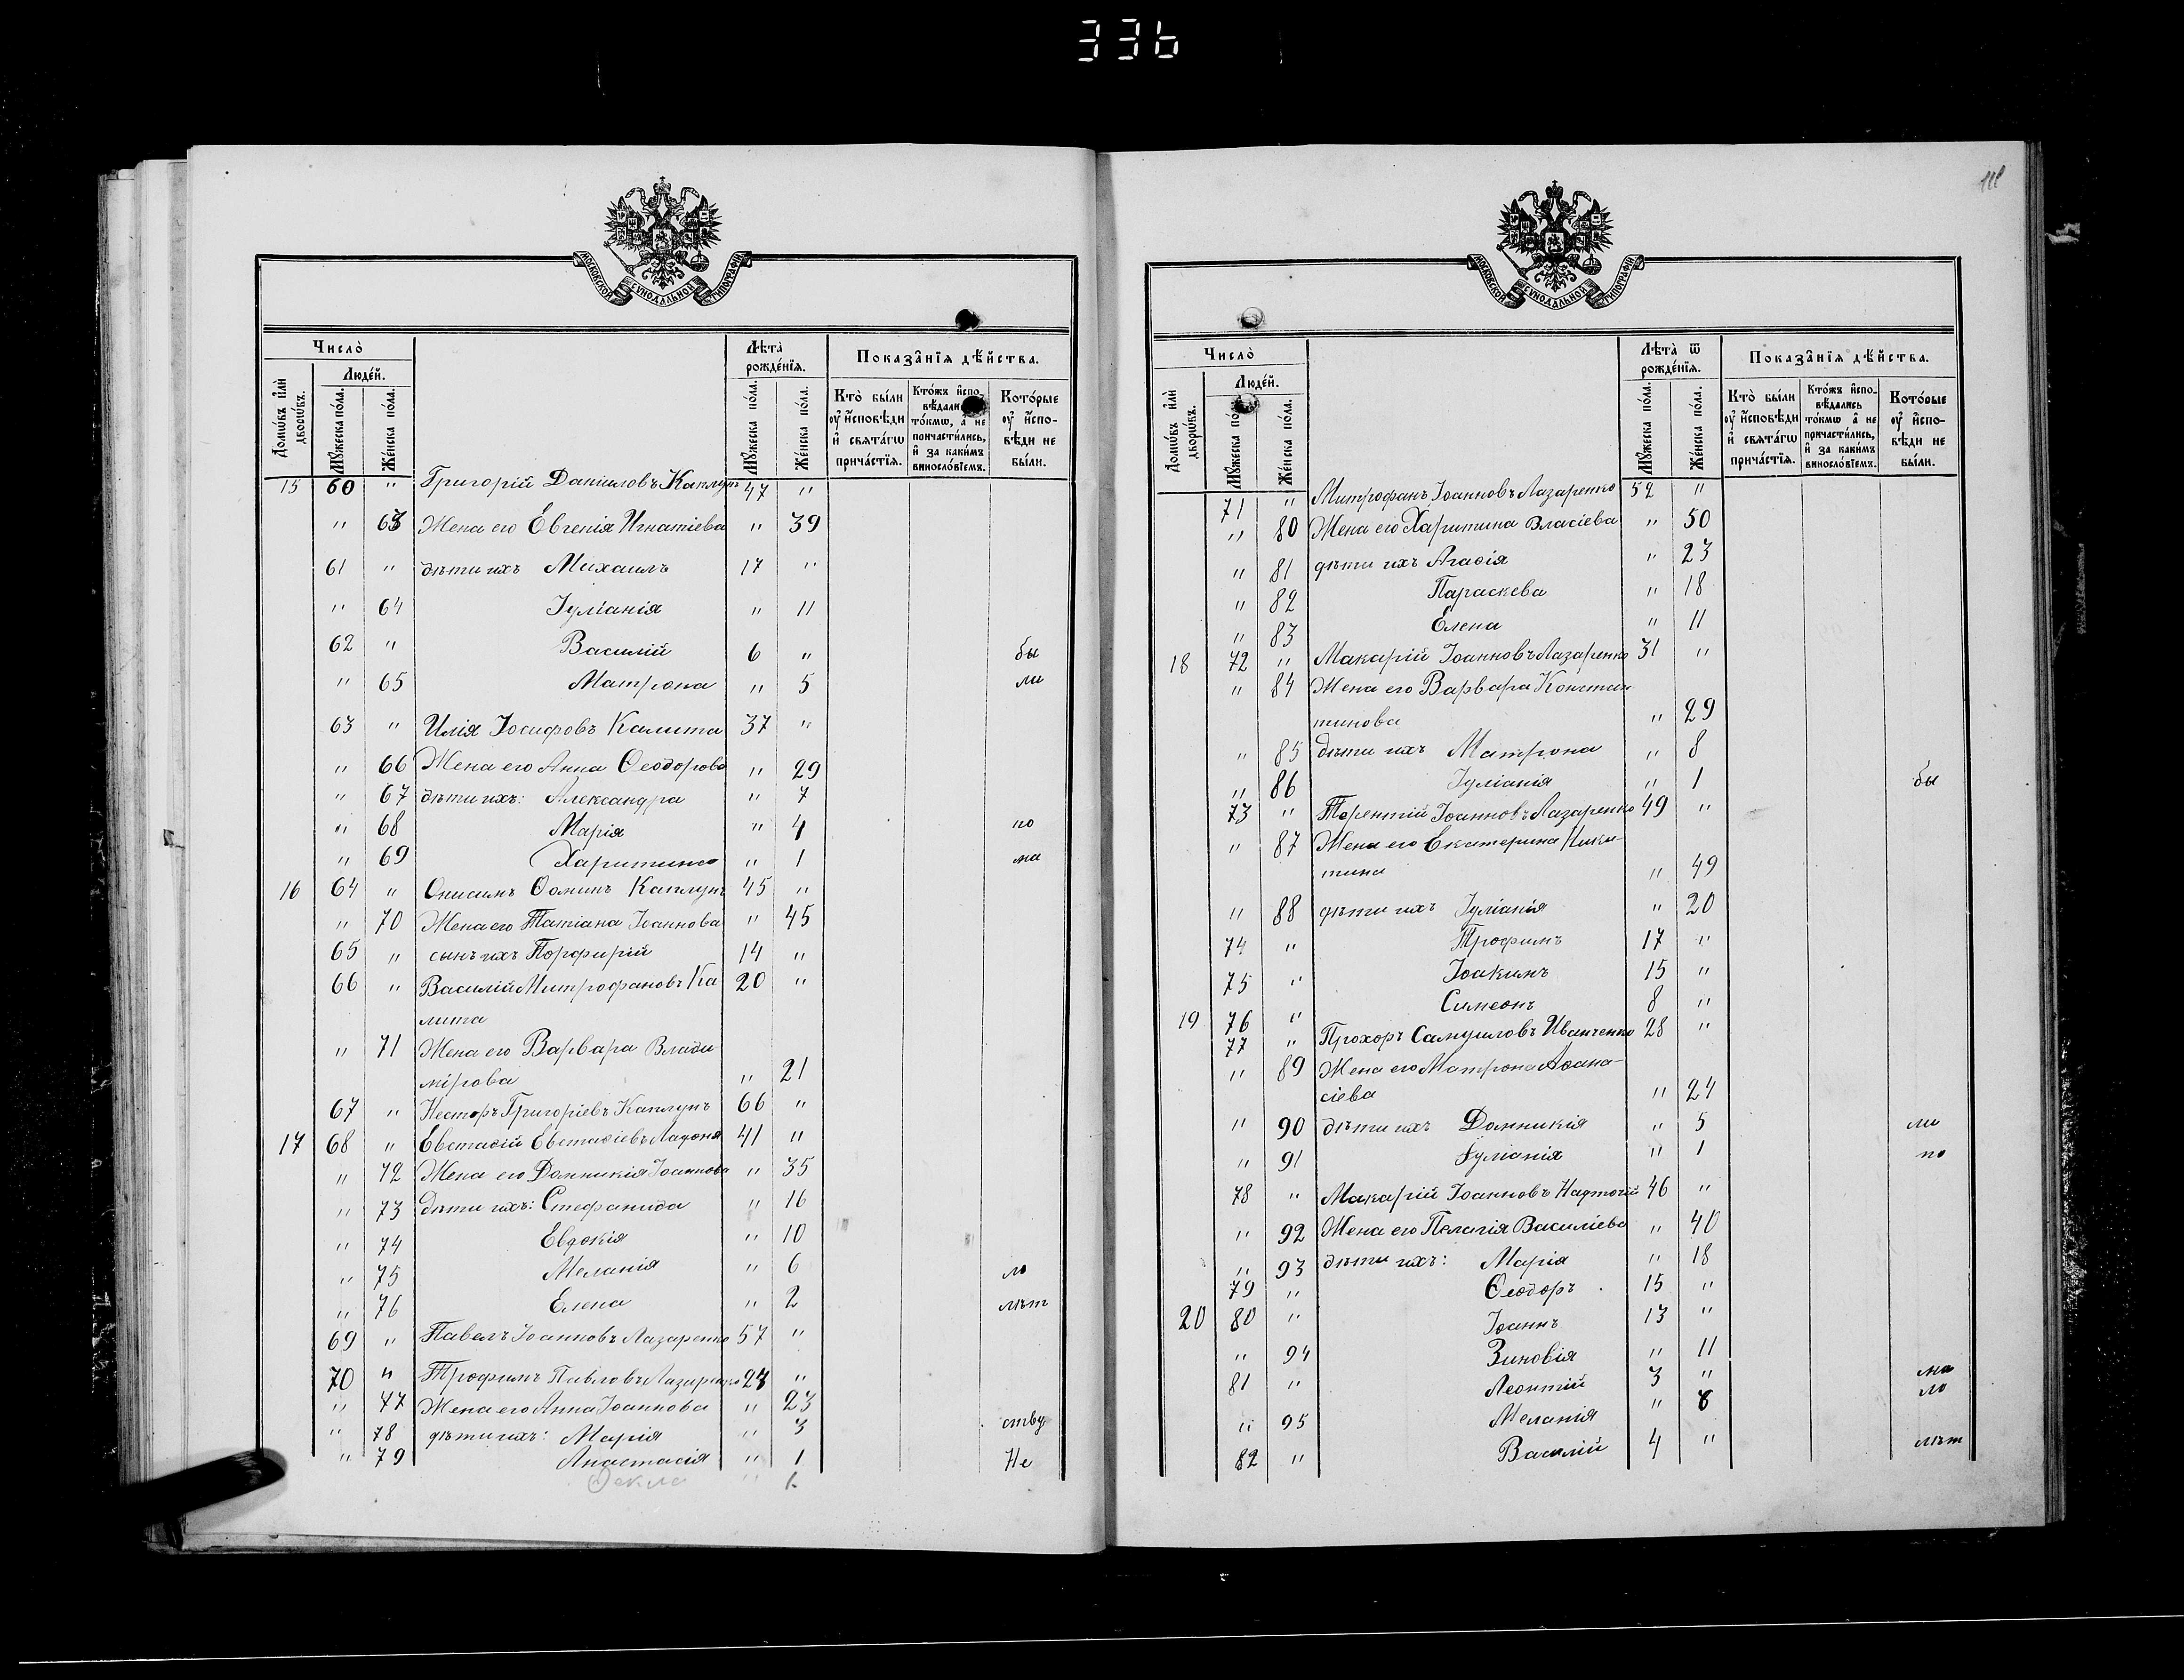 336
МОСКОВСКОЙ СѴНОДАЛЬНОЙ ТИПОГРАФІИ
Число̀
Люде́й.
Домѡ́въ и҆лѝ дворѡ́въ.
Мꙋ́жеска по́ла.
Же́нска по́ла.
Лѣ́та̀ рожде́нїѧ.
Мꙋ́жеска по́ла.
Же́нска по́ла.
Показа̑нїѧ дѣ́йства.
Кто̀ бы́ли оу҆ и҆́сповѣди и҆ свѧта́гѡ прича́стїѧ.
Кто́жъ и҆спо-вѣ́дались то́кмѡ, а҆ не причасти́лись, и҆ за каки́мъ винослѡ́вїемъ.
Кото́рые оу҆ и҆́спо-вѣди не бы́ли.
15 60 " Григорій Даніиловъ Каплунъ 47 "
" 63 Жена его Евгенія Игнатіева " 39
61 " дѣти ихъ Михаилъ 17 "
" 64 Іуліанія " 11
62 " Василій 6 " бы
" 65 Матрона " 5 ли
63 " Илія Іосифовъ Калита 37 "
" 66 Жена его Анна Ѳеодорова " 29
" 67 дѣти ихъ: Александра " 7
" 68 Марія " 4 по
" 69 Харитина " 1 ма
16 64 " Онисимъ Ѳоминъ Каплунъ 45 "
" 70 Жена его Татіана Іоаннова " 45
65 " сынъ ихъ Порфирій 14 "
66 " Василій Митрофановъ Ка 20 "
лита
" 71 Жена его Варвара Влади
мірова " 21
67 " Несторъ Григоріевъ Каплунъ 66 "
17 68 " Евстафій Евстафіевъ Ладоня 41 "
" 72 Жена его Домникія Іоаннова " 35
" 73 Дѣти ихъ: Стефанида " 16
" 74 Евдокія " 10
" 75 Меланія " 6 ло
" 76 Елена " 2 лѣт
69 " Павелъ Іоанновъ Лазаренко 57 "
70 " Трофимъ Павловъ Лазаренко 24 "
" 77 Жена его Анна Іоаннова " 23
" 78 дѣти ихъ: Марія " 3 ству
" 79 Анастасія " 1 Не
Ѳекла " 1
МОСКОВСКОЙ СѴНОДАЛЬНОЙ ТИПОГРАФІИ
Число̀
Люде́й.
Домѡ́въ и҆лѝ дворѡ́въ.
Мꙋ́жеска по́ла.
Же́нска по́ла.
Лѣ́та̀ ѿ рожде́нїѧ.
Мꙋ́жеска по́ла.
Же́нска по́ла.
Показа̑нїѧ дѣ́йства.
Кто̀ бы́ли оу҆ и҆́сповѣди и҆ свѧта́гѡ прича́стїѧ.
Кто́жъ и҆спо-вѣ́дались то́кмѡ а҆ не причасти́лись, и҆ за каки́мъ винослѡ́вїемъ.
Кото́рые оу҆ и҆́спо-вѣди не бы́ли.
71 " Митрофанъ Іоанновъ Лазаренко 52 "
" 80 Жена его Харитина Власіева " 50
" 81 дѣти ихъ Агафія " 23
" 82 Параскева " 18
" 83 Елена " 11
18 72 " Макарій Іоанновъ Лазаренко 31 "
" 84 Жена его Варвара Констан
тинова " 29
" 85 дѣти ихъ Матрона " 8
" 86 Іуліанія " 1 бы
73 " Терентій Іоанновъ Лазаренко 49 "
" 87 Жена его Екатерина Ники
тина " 49
" 88 дѣти ихъ Іуліанія " 20
74 " Трофимъ 17 "
75 " Іоакимъ 15 "
19 76 " Симеонъ 8 "
77 " Прохоръ Самуиловъ Иванченко 28 "
" 89 Жена его Матрона Аѳана-
сіева " 24
" 90 дѣти ихъ Домникія " 5 ли
" 91 Іуліанія " 1 по
78 " Макарій Іоанновъ Надточій 46 "
" 92 Жена его Пелагія Василіева " 40
" 93 дѣти ихъ: Марія " 18
79 " Ѳеодоръ 15 "
20 80 " Іоаннъ 13 "
" 94 Зиновія " 11
81 " Леонтій 3 " ма
" 95 Меланія " 8 ло
82 " Василій 4 " лѣт